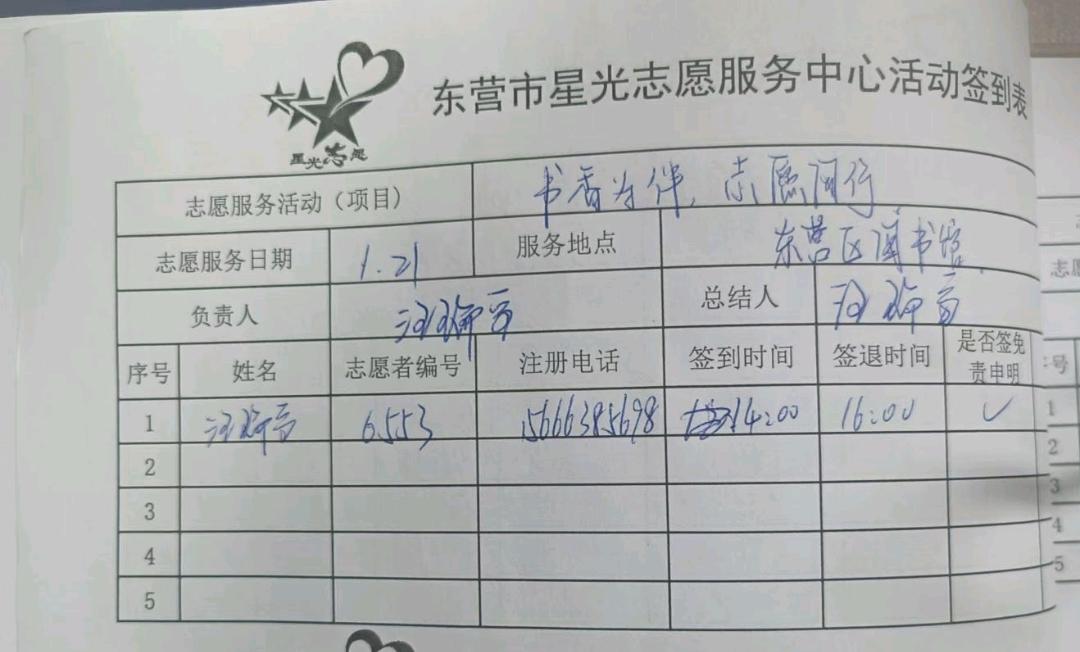 星光志愿
东营市星光志愿服务中心活动签到表
志愿服务活动（项目） 书香为伴，志愿同行
志愿服务日期 1.21 服务地点 东营区图书馆
负责人 总结人
序号 姓名 志愿者编号 注册电话 签到时间 签退时间 是否签免
责申明
1 6553 15666385698 14:00 16:00 ✓
2
3
4
5
志愿
序号
1
2
3
4
5